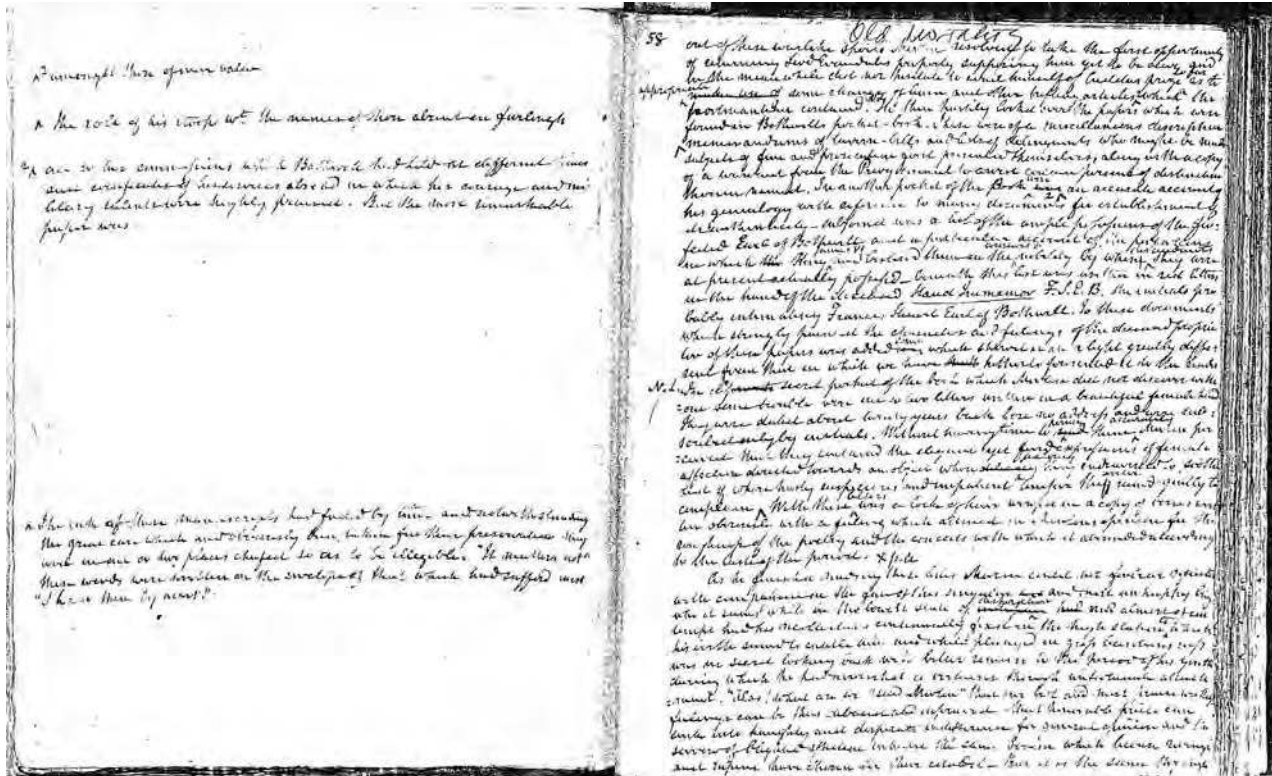 ^ amongst those of more value
^ the role of his troop wt. the names of those absent on furlough
^ one or two commissions which Bothwell had held at different times
and certificates of his services abroad in which his courage and mi
litary talents were highly praised. But the most remarkable
paper was
^ The ink of these manuscripts had faded by time and notwithstanding
the great care which had obviously been taken for their preservation they
were in one or two places chafed so as to be illegible. "It matters not"
these words were written on the envelope of that which had sufferd most
"I have them by heart."
58 Old Mortality
out of these warlike spoils Morton resolved to take the first opportunity
of returning Lord Evandale's property supposing him yet to be alive and
in the meanwhile did not hesitate to avail himself of Cuddies prize so far as to
appropriate some changes of linen and other trifling articles which the
portmanteau contained. He then hastily looked over the papers which were
found in Bothwells pocket-book. These were of a miscellaneous description
memorandums of tavern-bills and lists of delinquents who might be made
subjects of fine and persecution first presented themselves, along with a copy
of a warrant from the Privy Council to arrest certain persons of distinction
therein named. In another pocket of the Book was an accurate account of
his genealogy with reference to many documents for establishment of
its authenticity - subjoined was a list of the ample possessions of the for-
feited Earl of Bothwell and a particular account of the proportions
in which King James VI had bestowed them on the nobility by whose descendants they were
at present actually possessed - beneath this list was written in red letters
in the hand of the deceased Haud Immemor F.S.E.B. the initials pro
bably intimating Francis Stuart Earl of Bothwell. To these documents
which strongly painted the character and feelings of the deceased proprie
tor of these papers was added some which shewed him in a light greatly diffe
rent from that in which we have hitherto presented it to the reader
N.L. In a secret pocket of the book which Morton did not discover with
out some trouble were one or two letters written in a beautiful female hand
They were dated about twenty years back bore no address and were sub
scribed only by initials. Without having time to peruse them accurately Morton per
ceived that they contained the elegant yet fond expressions of female
affection directed towards an object whose jealousy they endeavourd to soothe
and of whose hasty suspicious and impatient temper the writer seemd gently to
complain. With these letters was a lock of hair wrapd in a copy of verses writ
ten obviously with a feeling which atoned in Mortons opinion for the
roughness of the poetry and the conceits with which it abounded according
to the taste of the period.
As he finished reading these lines Morton could not forbear reflecting
with compassion on the fate of this singular and most unhappy being
who it seemd while in the lowest state of degradation and almost of con
tempt had his recollections continually fixd on the high station to which
his birth seemd to entitle him and while plunged in gross licentiousness
was in secret looking back with bitter remorse to the period of his youth
during which he had nourishd a virtuous though unfortunate attach
ment. "Alas! what are we" said Morton "that our best and most praise worthy
feelings can be thus debased and depraved - that honorable pride can
sink into haughty and desperate indifference for general opinion and the
sorrow of blighted affection inhabit the same bosom which licence revenge
and rapine have chosen for their citadel - But it is the same through